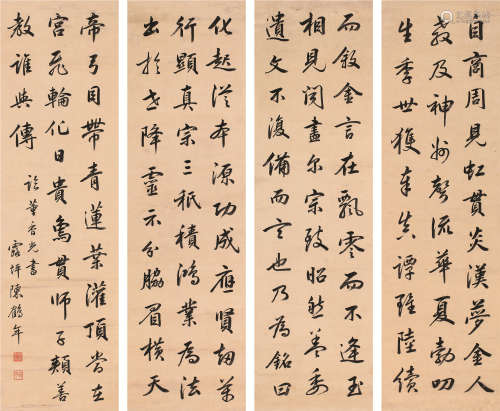 自商周見虹貫炎漢夢金人
教及神州聲流華夏勃叨
生季世獲奉真譚雖陸續
而敘金言在飄零而不逢玉
相見閱盡尔宗致昭然蓋委
遺文不復備而言也乃為銘曰
化起從本源功成應賢劫萬
行顯真宗三祇積鴻業為法
出於世降靈示分脇眉橫天
帝弓目帶青蓮葉灌頂出在
宮飛輪化日貴象貫師子頰善
教誰與傳
臨董香光書
霞坪陳鶴年